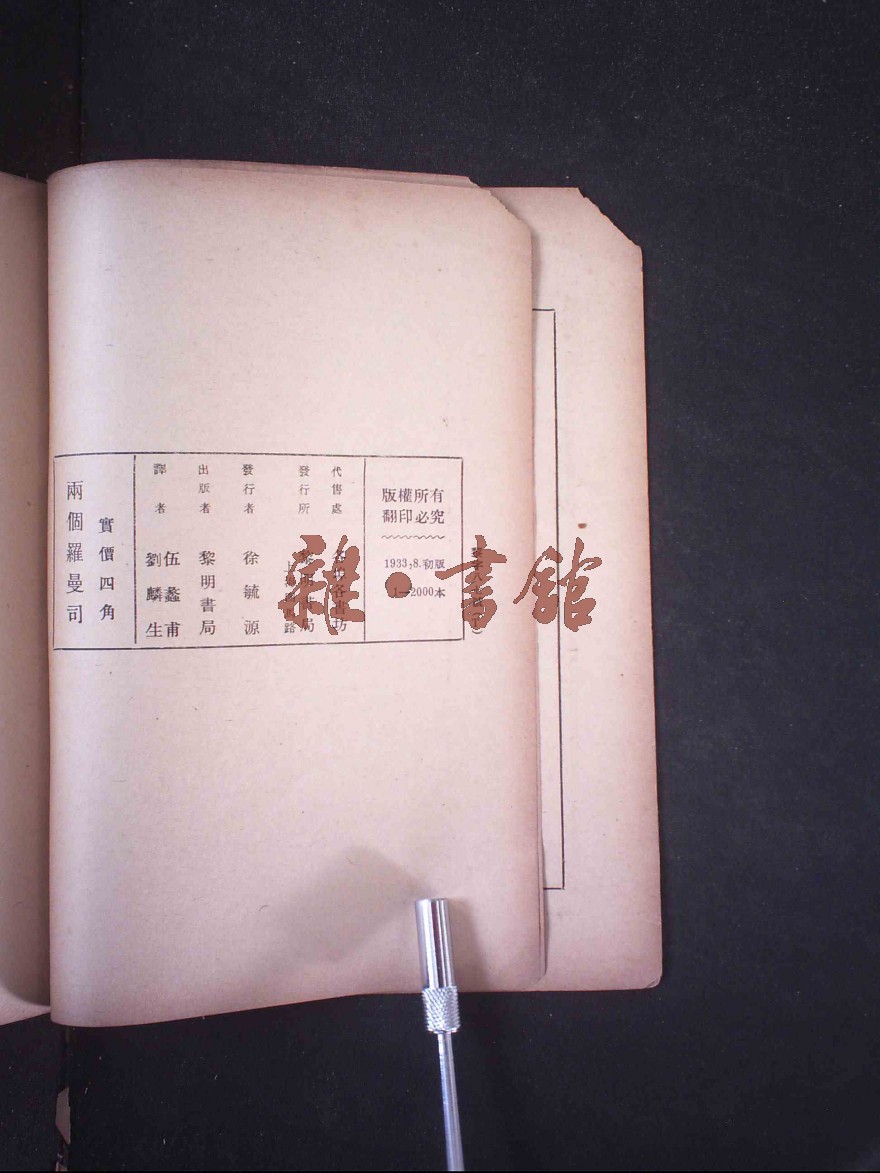 版權所有
翻印必究
1933,8.初版
1—2000本
代售處 各書坊
發行所 黎明書局
發行者 徐毓源
出版者 黎明書局
譯者 伍蠡甫
劉麟生
實價四角
兩個羅曼司
雜·書館